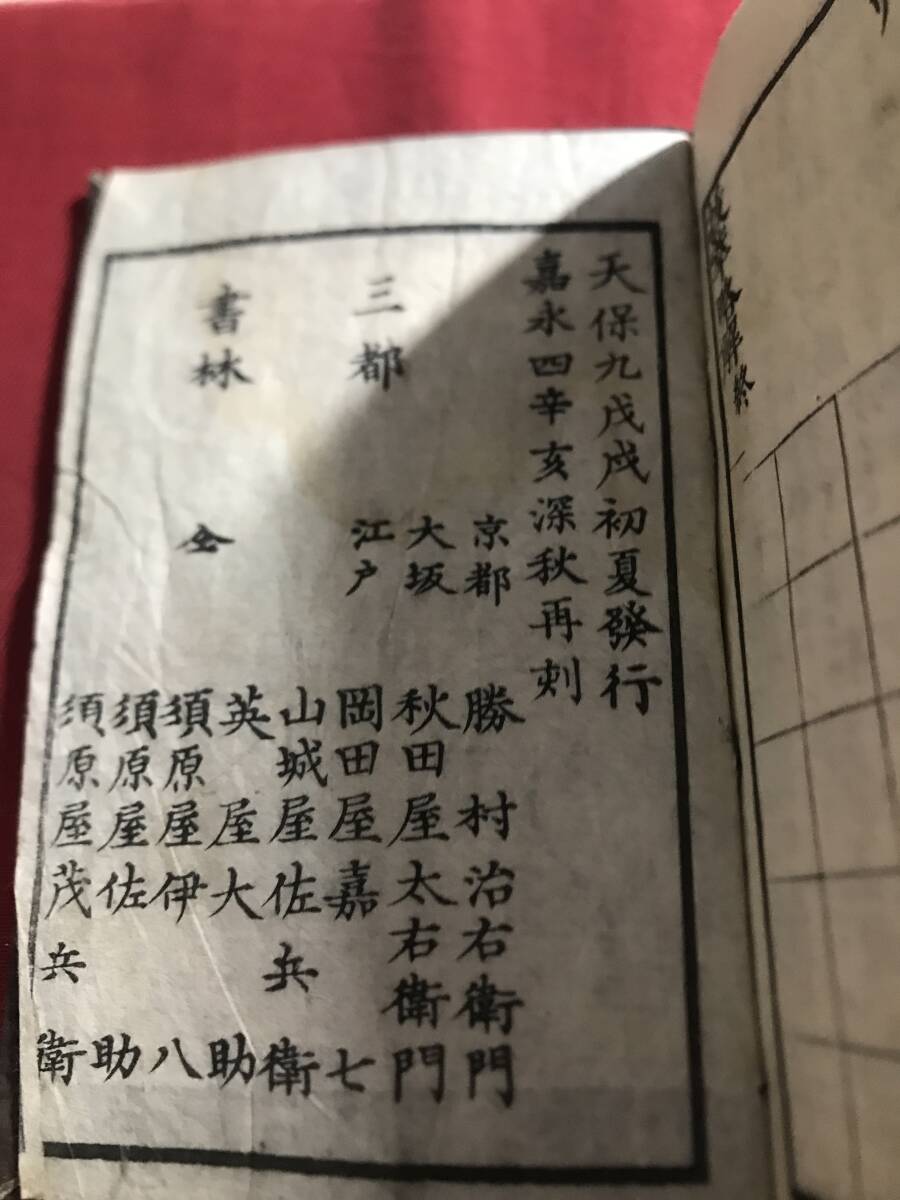 略解終
天保九戊戌初夏發行
嘉永四辛亥深秋再刻
三都
書林
京都 勝村治右衛門
大坂 秋田屋太右衛門
江戸 岡田屋嘉七
山城屋佐兵衛
英屋大助
仝 須原屋伊八
須原屋佐助
須原屋茂兵衛